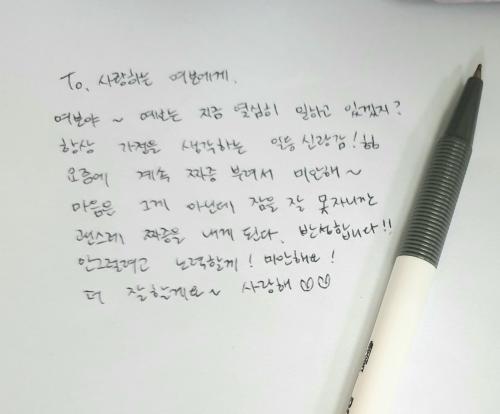 To. 사랑하는 여보에게.
여보야 ~ 여보는 지금 열심히 일하고 있겠지?
항상 가정을 생각하는 일등 신랑감! ㅎㅎ
요즘에 계속 짜증 부려서 미안해 ~
마음은 그게 아닌데 잠을 잘 못자니깐
괜스레 짜증을 내게 된다. 반성합니다!!
안그럴려고 노력할게! 미안해요!
더 잘할게요~ 사랑해 ♡♡